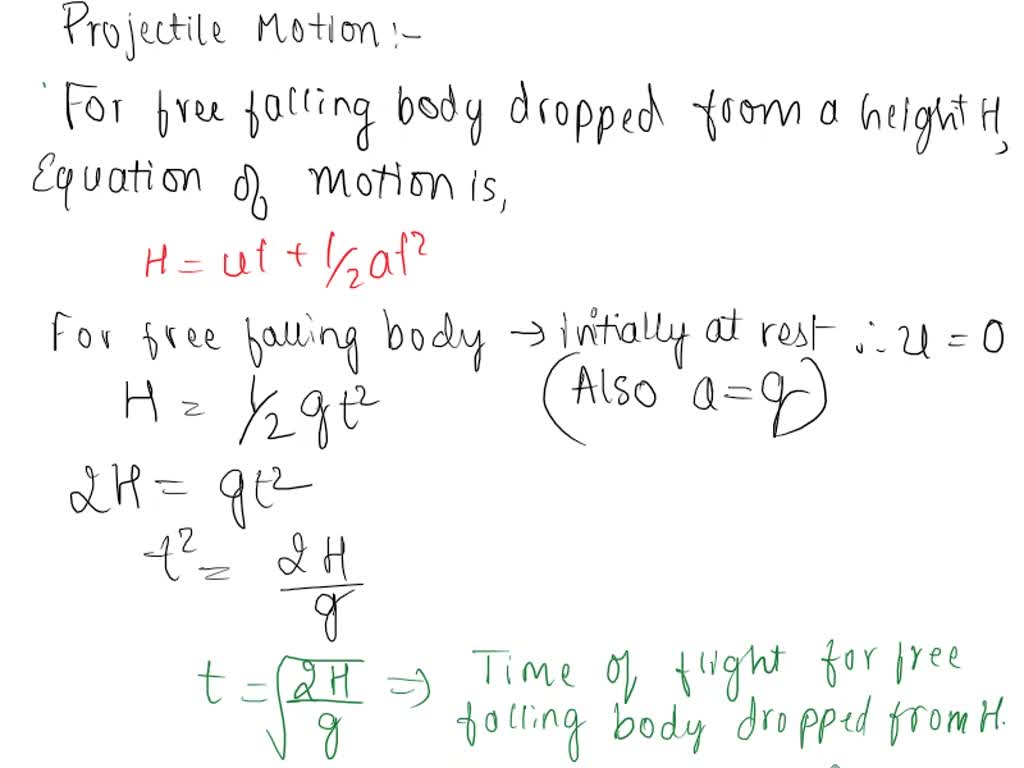 Projectile Motion:-
For free falling body dropped from a height H,
Equation of motion is,
H = ut + 1/2 at²
For free falling body → Initially at rest ∴ u = 0
H = 1/2 gt² (Also a = g)
2H = gt²
t² = 2H/g
t = √(2H/g) ⇒ Time of flight for free
falling body dropped from H.